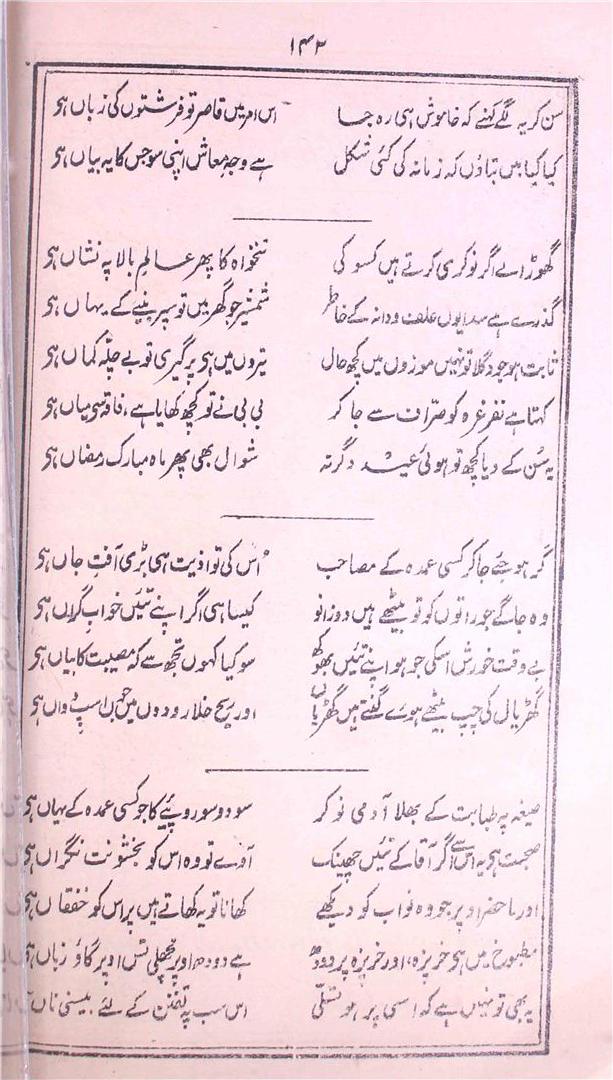 ۱۴۲
سن کر یہ لگے کہنے کہ خاموش ہی رہ جا اس امر میں قاصر تو فرشتوں کی زباں ہی
کیا کیا میں بتاؤں کہ زمانہ کی کئی شکل ہے وجہ معاش اپنی سو جس کا یہ بیاں ہی
گھوڑا لے اگر نوکری کرتے ہیں کسو کی تنخواہ کا پھر عالم بالا پہ نشاں ہی
گذرے ہے سدا یوں علف و دانہ کے خاطر شمشیر جو گھر میں تو سپر بنیے کے یہاں ہی
ثابت ہو جو دگلا تو نہیں موزوں میں کچھ حال تیروں میں ہی پر گیری تو بے چلّہ کماں ہی
کہتا ہے نفر غرہ کو صرّاف سے جا کر بی بی نے تو کچھ کھایا ہے، فاقہ سے میاں ہی
یہ سُن کے دیا کچھ تو ہوئی عید دگرنہ شوال بھی پھر ماہ مبارک رمضاں ہی
گر ہو جئے جا کر کسی عمدہ کے مصاحب اُس کی تو اذیت ہی بڑی آفتِ جاں ہی
وہ جاگے جو راتوں کو تو بیٹھے ہیں دو زانو کیسا ہی اگر اپنے تئیں خواب گراں ہی
بے وقت خورش اسکی جو ہو اپنے تئیں بھوکھ سو کیا کہوں تجھ سے کہ مصیبت کا بیاں ہی
گھڑیال کی چپ بیٹھے ہوئے گنتے ہیں گھڑیاں اور ریح خلا رودوں میں جوں اسپ دواں ہی
صیغہ پہ طبابت کے بھلا آدمی نوکر سو دو سو روپئے کا جو کسی عمدہ کے یہاں ہی
صحبت ہی یہ اس سے اگر آقا کے تئیں چھینک آوے تو وہ اس کو بخشونت نگراں ہی
اور ماحضر اوپر جو وہ نواب کو دیکھے کھانا تو یہ کھاتے ہیں پر اس کو خفقاں ہی
مطبوخ میں ہی خرپزہ، اور خرپزہ پر دودھ ہے دودھ اوپر مچھلی تس اوپر گاؤ زباں ہی
یہ بھی تو نہیں ہے کہ اسی پر ہو تسلّی اس سب پہ تفنن کے لئے بیسنی ناں